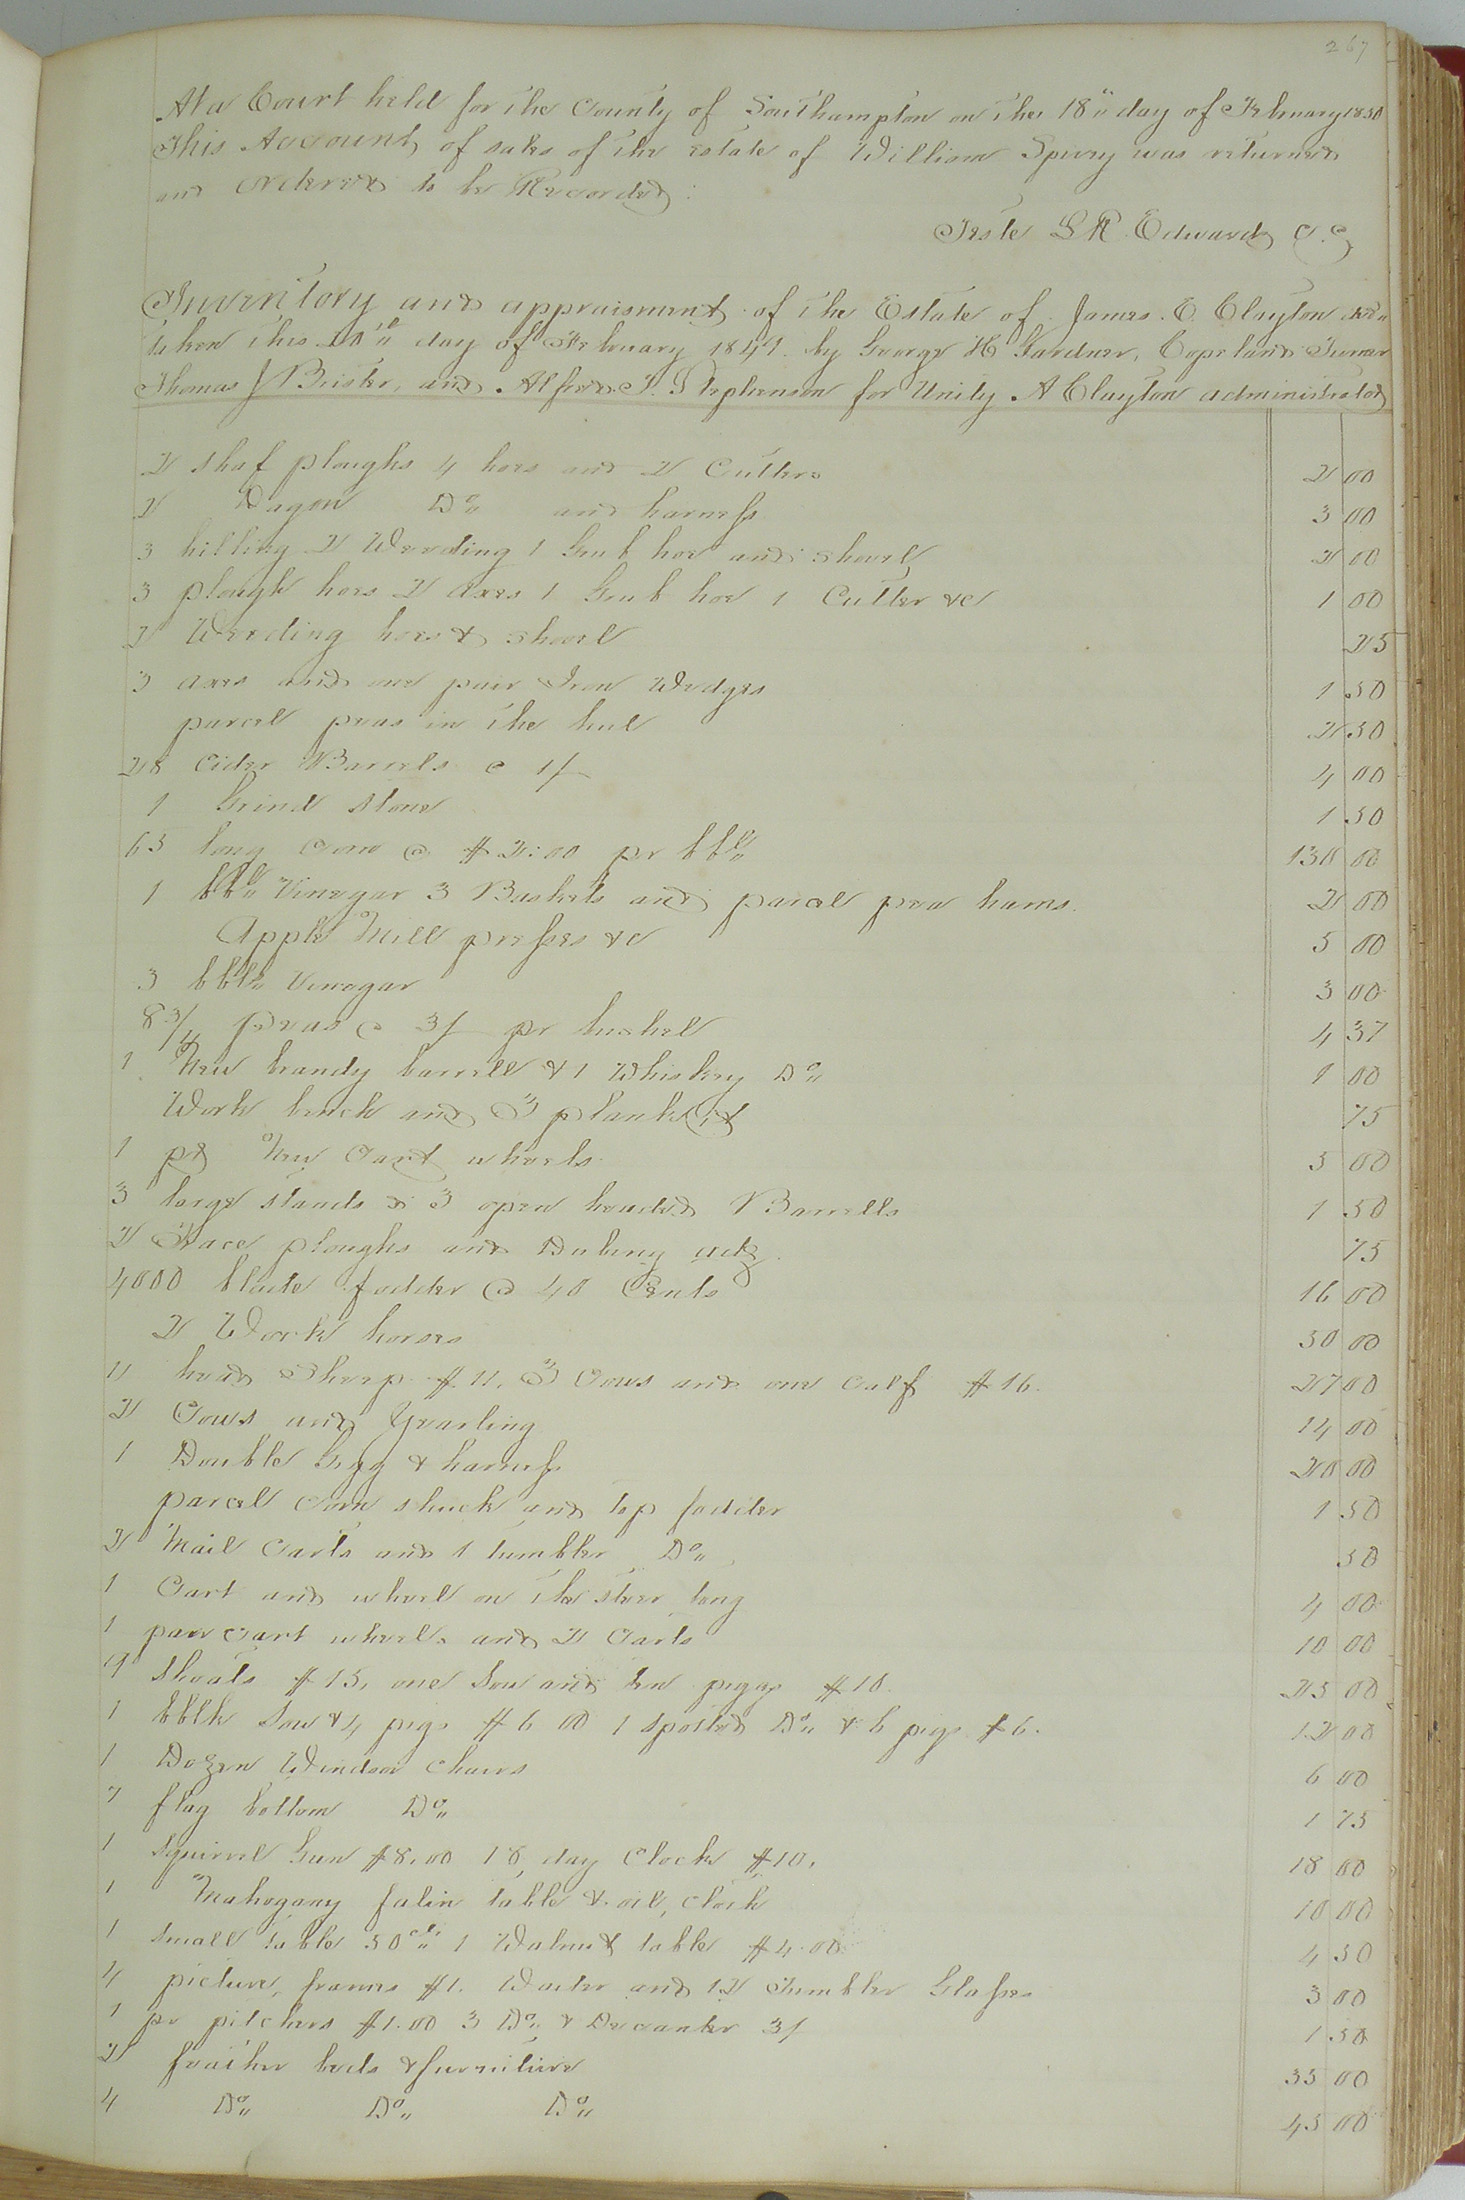 267
At a Court held for the County of Southampton on the 18" day of February 1850
This Account of sales of the estate of William Spivey was returned
and ordered to be Recorded:
Teste L R Edwards C.C.
Inventory and appraisment of the Estate of James. E. Clayton decd
taken this day of February 184 by George H Gardner, Copeland Turner
Thomas J Brister, and Alfred Stephenson for Unity A Clayton administrator
2 shaf ploughs 4 hoes and 2 Cutters 2 00
2 Dagon Do and harness 3 00
3 hilling 2 Weeding 1 Grub hoe and shovel 2 00
3 plough hoes 2 axes 1 Grub hoe 1 Cutter &c 1 00
2 Weeding hoes & shovel 25
3 axes and one pair Iron Wedges 1 50
parcel peas in the hul 2 50
28 Cider Barrels @ 1/ 4 00
1 Grind stone 1 50
65 long Corn @ $2:00 pr bbl 130 00
1 bbl Vinegar 3 Baskets and parcel pea hams. 2 00
Apple Mill presses &c 5 00
3 bbls Vinegar 3 00
8 3/4 peas @ 3/ pr bushel 4 37
1 New brandy barrell & 1 Whiskey Do 1 00
Work bench and 3 planks 75
1 pr New Cart wheels 5 00
3 large stands & 3 open headed Barrells 1 50
2 Trace ploughs and Dubing adz 75
4000 blade fodder @ 40 Cents 16 00
2 Work horses 50 00
11 head Sheep $11. 3 Cows and one Calf $16. 27 00
2 Cows and Yearling 14 00
1 Double Gigg & harness 20 00
parcel corn shuck and top fodder 1 50
2 Mail Carts and 1 tumbler Do 50
1 Cart and wheel on the steer tong 4 00
1 pair cart wheels and 2 Carts 10 00
9 Shoats $15, one Sow and ten pigs $10. 25 00
1 bblk Sow & 4 pigs $6 00 1 spotted Do & 6 pigs $6. 12 00
1 Dozen Windsor Chairs 6 00
7 flag bottom Do 1 75
1 Squirrel Gun $8.00 1 8, day Clock $10. 18 00
1 Mahogany falin table & oil, cloth 10 00
1 small table 50 cts 1 Walnut table $4.00 4 50
4 picture, frames $1. Waiter and 12 Tumbler Glasses 3 00
1 pr pitchers $1.00 3 Do & Decanter 3/ 1 50
2 feather beds & furniture 35 00
4 Do Do Do 45 00